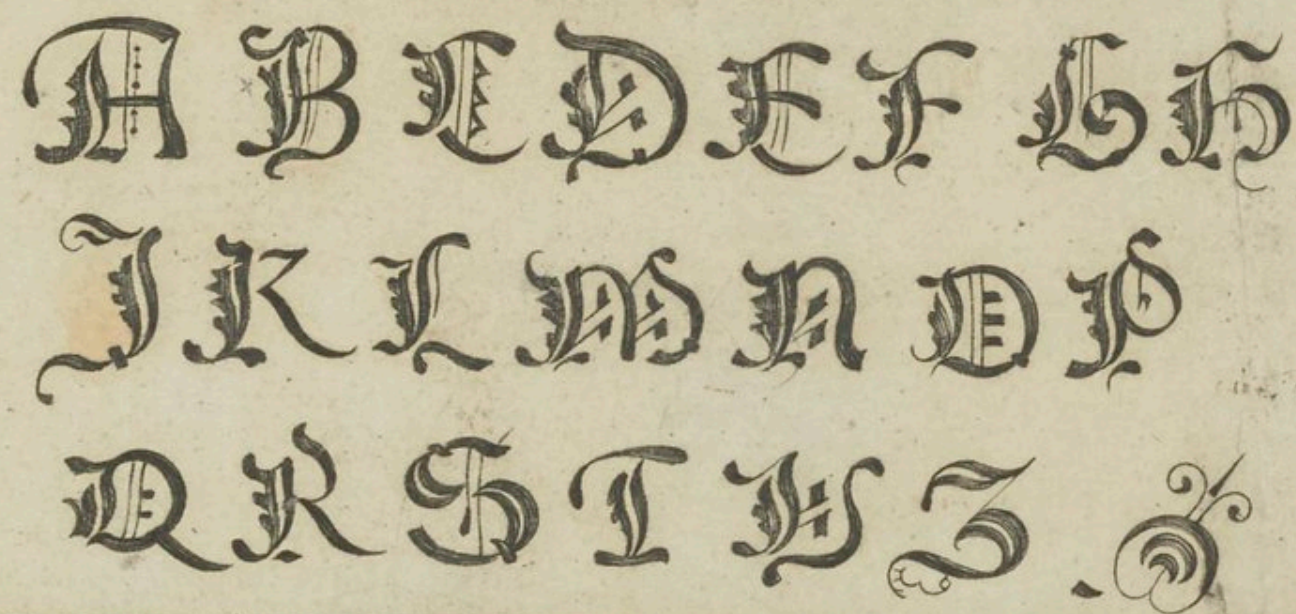 A B C D E F G H
I K L M N O P
Q R S T V Z .